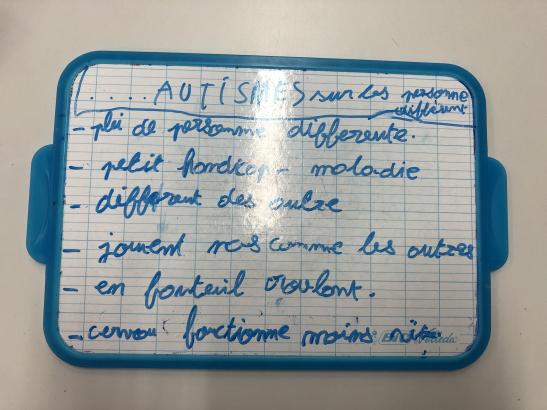 (..... AUTISMES sur les personne
différent
- plu de personne differente.
- petit handicap - maladie
- différent des autre
- jouent pas comme les autres
- en fauteuil roulant.
- cerveau fonctionne moins vite.